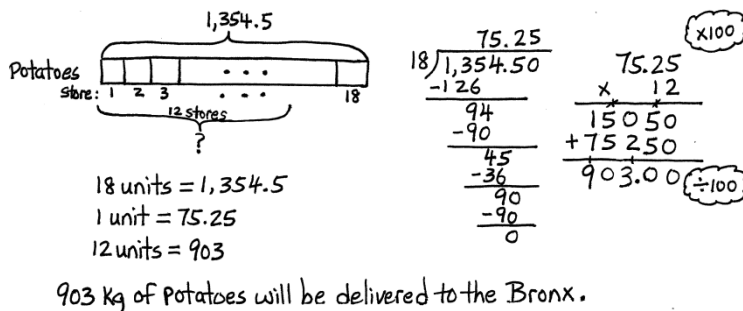 1,354.5
Potatoes
store: 1 2 3 ... ... 18
12 stores
?
18 units = 1,354.5
1 unit = 75.25
12 units = 903
75.25
18)1,354.50
-126
94
-90
45
-36
90
-90
0
x100
75.25
x 12
15050
+75250
903.00
÷100
903 kg of potatoes will be delivered to the Bronx.